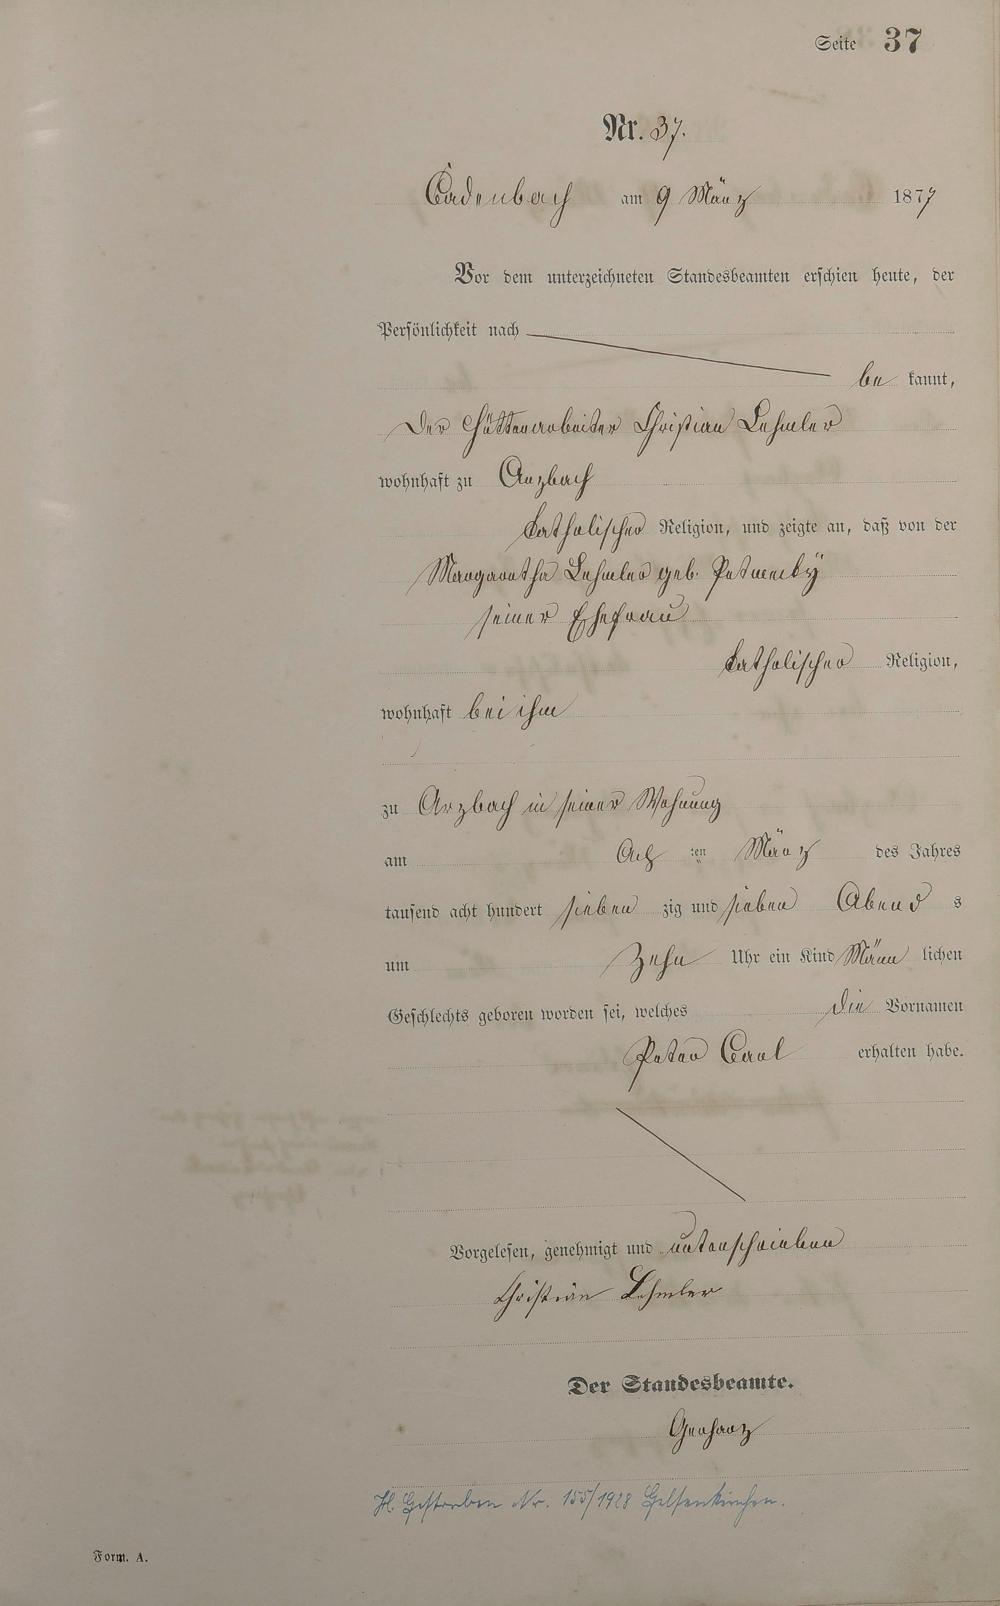 Seite 37
Nr. 37.
Cadenbach am 9 März 1877
Vor dem unterzeichneten Standesbeamten erschien heute, der
Persönlichkeit nach
be kannt,
Der Hüttenarbeiter Christian Lehmler
wohnhaft zu Arzbach
katholischer Religion, und zeigte an, daß von der
Margaretha Lehmler geb.
seiner Ehefrau
katholischer Religion,
wohnhaft bei ihm
zu Arzbach in seiner Wohnung
am Ach ten März des Jahres
tausend acht hundert sieben zig und sieben Abend s
um Zehn Uhr ein Kind Männ lichen
Geschlechts geboren worden sei, welches die Vornamen
Peter Carl erhalten habe.
Vorgelesen, genehmigt und unterschrieben
Christian Lehmler
Der Standesbeamte.
Gerharz
H. Gestorben Nr. 155/1928 Gelsenkirchen.
Form. A.